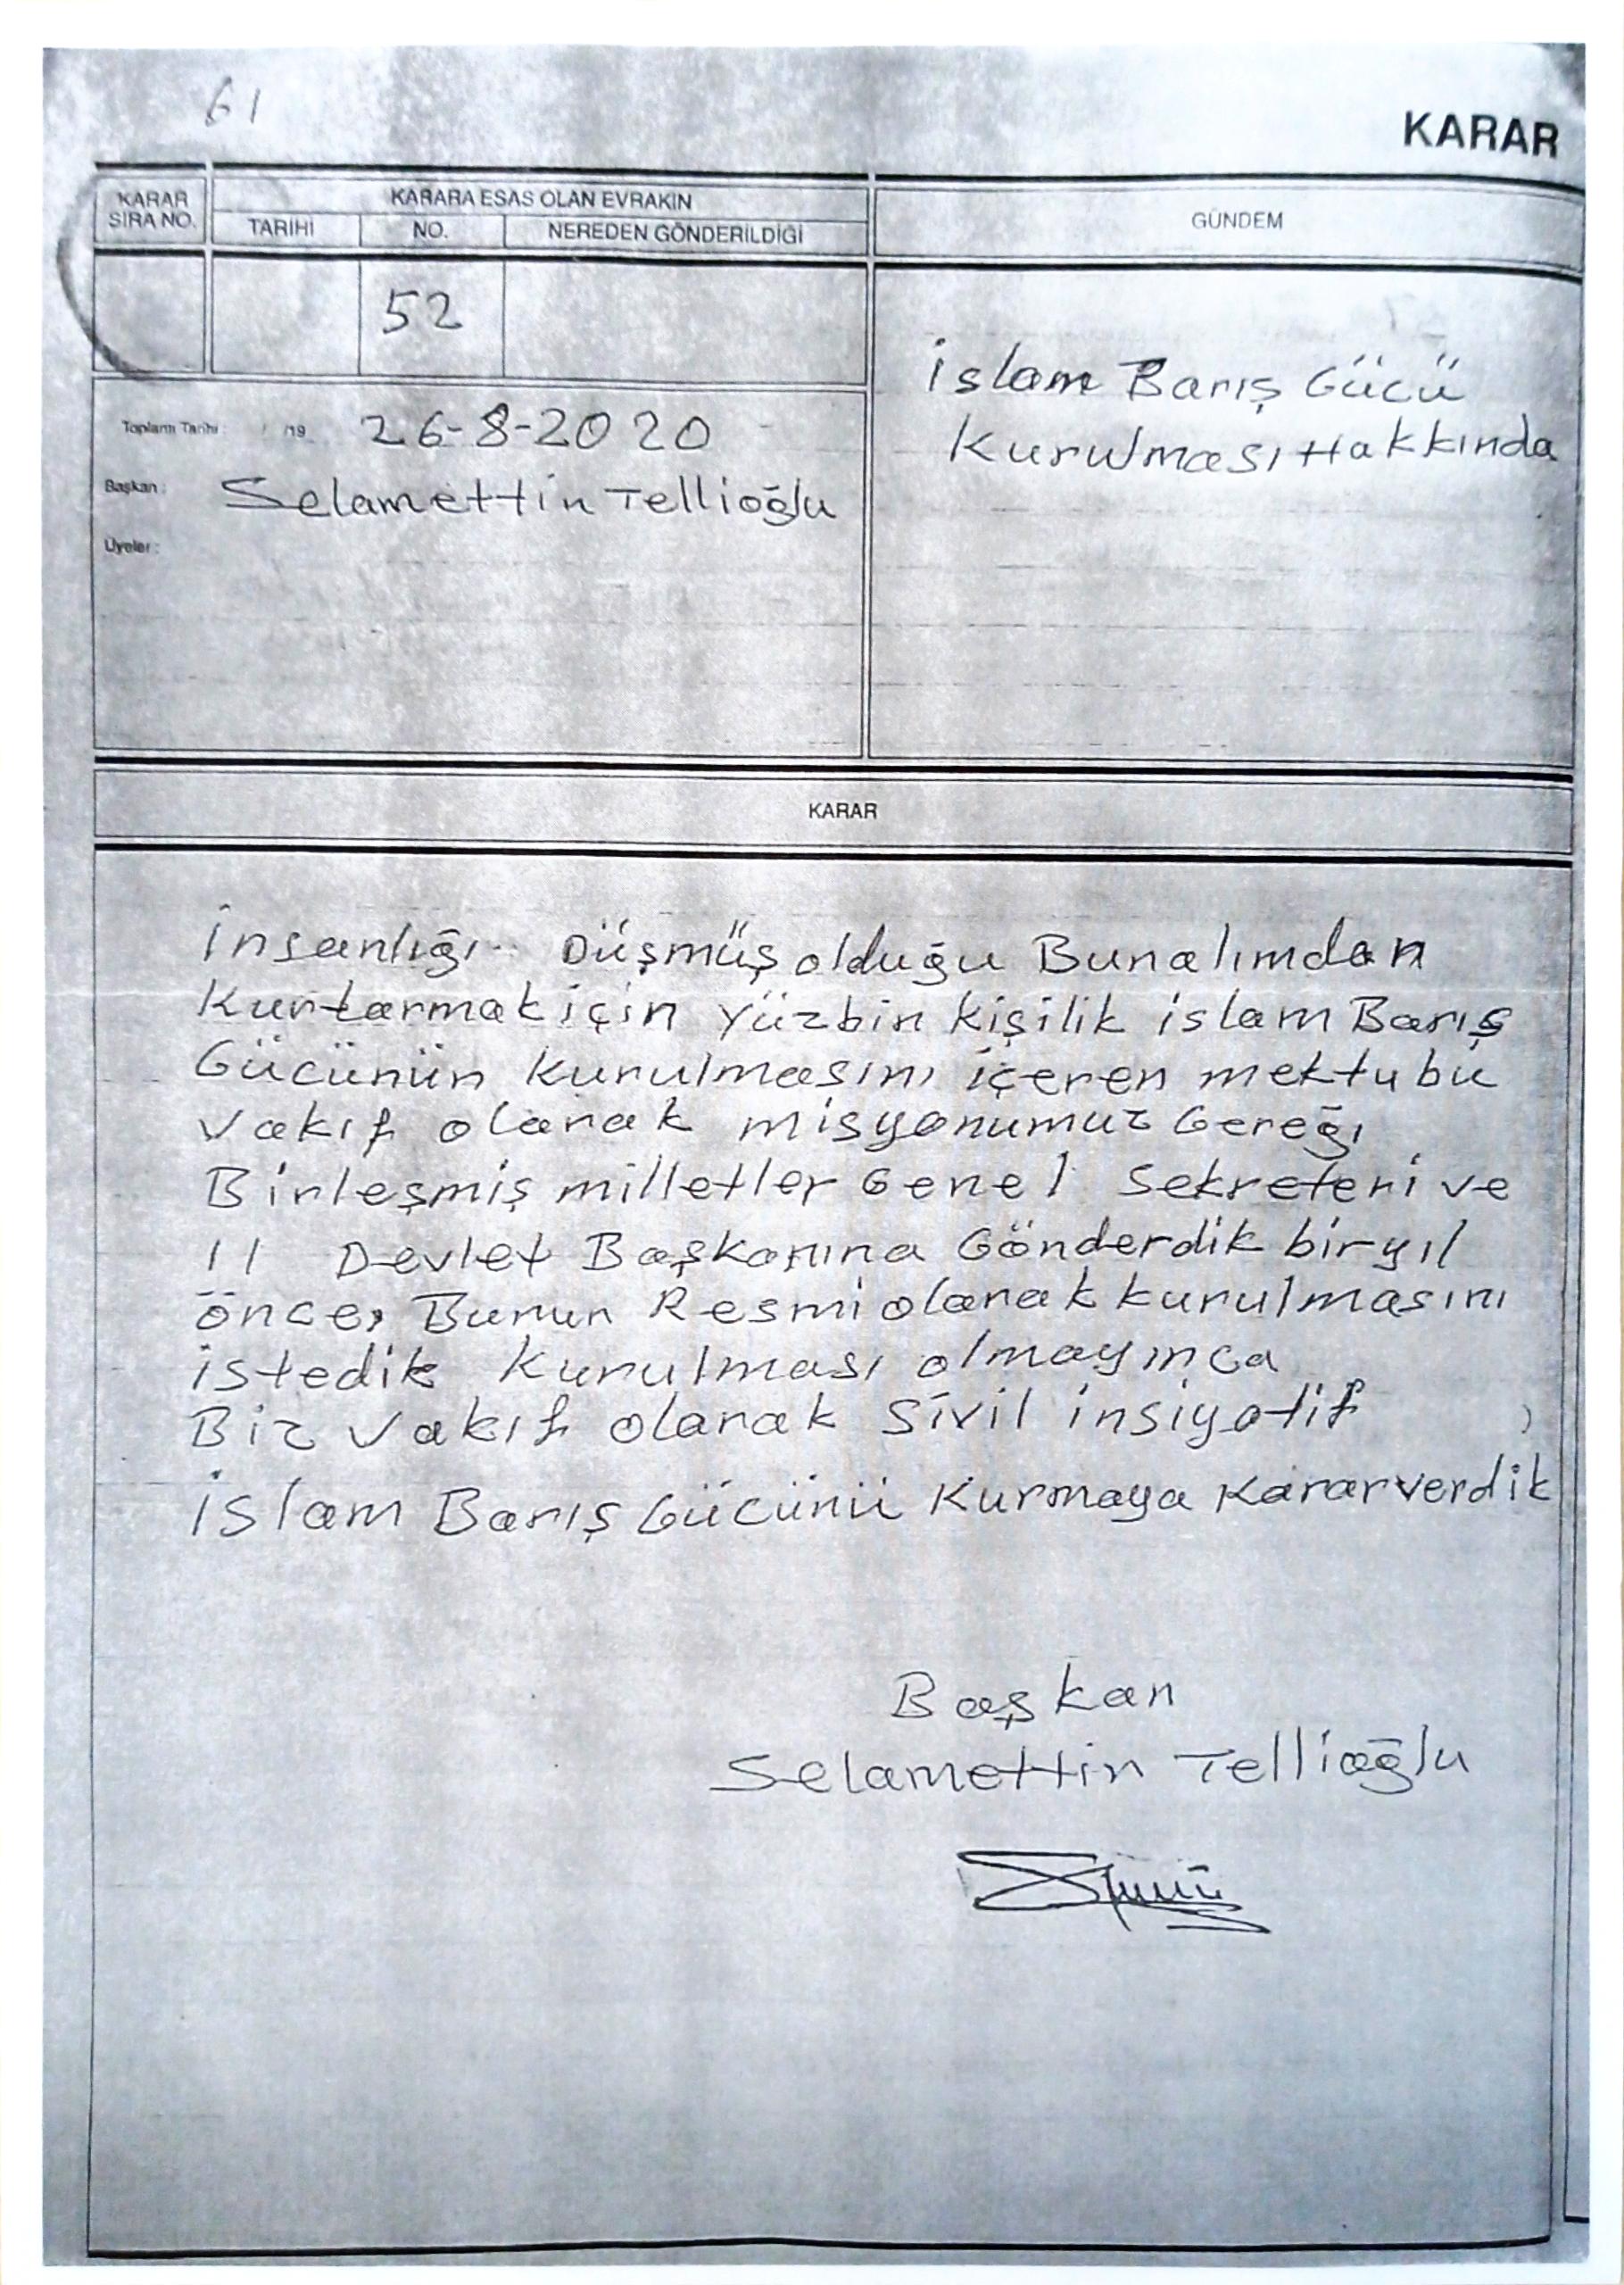 61
KARAR
KARAR SIRA NO.
KARARA ESAS OLAN EVRAKIN
TARİHİ
NO.
NEREDEN GÖNDERİLDİĞİ
GÜNDEM
52
İslam Barış Gücü
Kurulması Hakkında
Toplantı Tarihi: / /19 26-8-2020
Başkan: Selamettin Tellioğlu
Üyeler:
KARAR
İnsanlığı Düşmüş olduğu Bunalımdan
Kurtarmak için Yüzbin kişilik islam Barış
Gücünün Kurulmasını içeren mektubu
Vakıf olarak misyonumuz Gereği
Birleşmiş milletler Genel Sekreteri ve
11 Devlet Başkanına Gönderdik bir yıl
önce, Bunun Resmi olarak kurulmasını
istedik Kurulması olmayınca
Biz Vakıf olarak Sivil insiyatif
islam Barış Gücünü Kurmaya Karar verdik
Başkan
Selamettin Tellioğlu